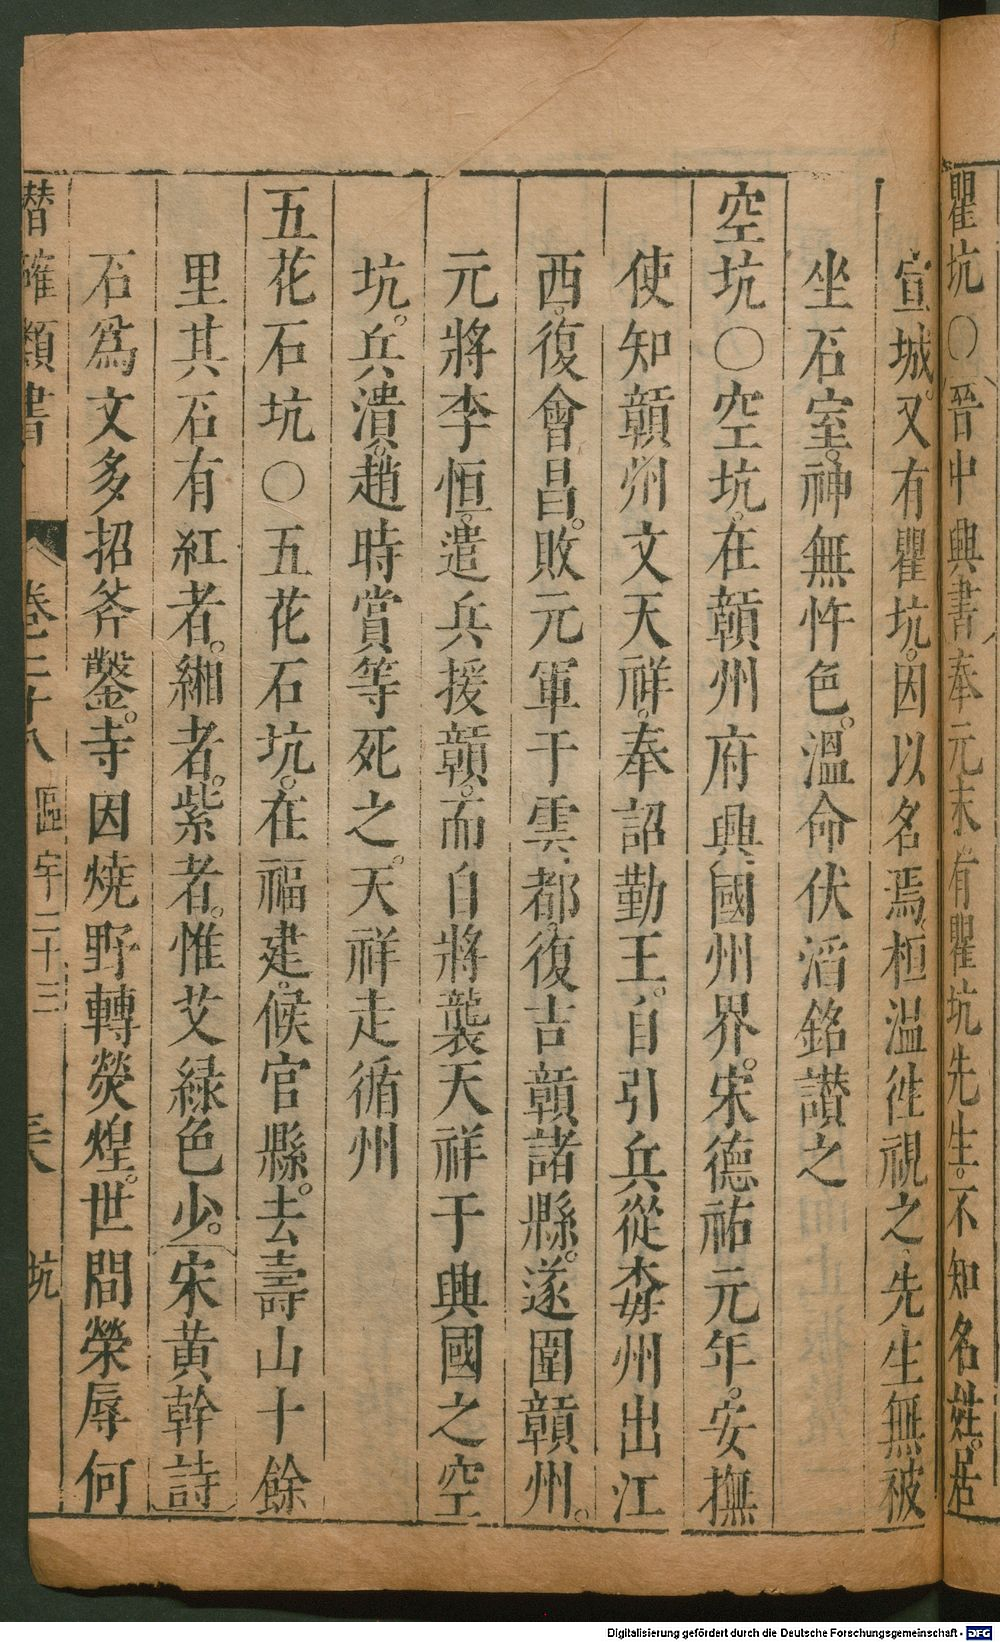 瞿坑○晉中興書奉元末有瞿坑先生不知名姓居
宣城又有瞿坑因以名焉桓温徃視之先生無被
坐石室神無忤色溫命伏滔銘讃之
空坑○空坑在贛州府興國州界宋德祐元年安撫
使知贛州文天祥奉詔勤王自引兵從梅州出江
西復會昌敗元軍于雲都復吉贛諸縣遂圍贛州
元將李恒遣兵援贛而自將襲天祥于興國之空
坑兵潰趙時賞等死之天祥走循州
五花石坑○五花石坑在福建候官縣去壽山十餘
里其石有紅者緗者紫者惟艾緑色少宋黄幹詩
石爲文多招斧鑿寺因燒野轉熒煌世間榮辱何
潛確類書 卷二十八 區宇二十三 坑
Digitalisierung gefördert durch die Deutsche Forschungsgemeinschaft - DFG